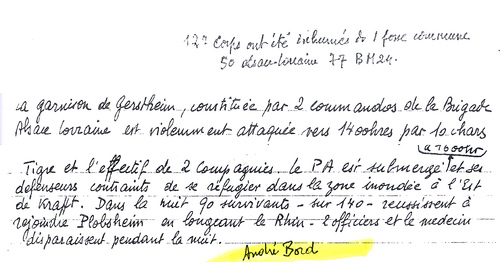 127 Corps ont été inhumés ds 1 fosse commune
50 Alsace-Lorraine 77 BM24.
La garnison de Gerstheim, constituée par 2 commandos de la Brigade
Alsace Lorraine est violemment attaquée vers 14 heures par 10 chars
Tigre et l'effectif de 2 Compagnies. le PA est submergé et ses
défenseurs contraints de se réfugier dans la zone inondée à l'Est
de Krafft. Dans la nuit 90 survivants - sur 140 - réussissent à
rejoindre Plobsheim en longeant le Rhin - l'officiers et le médecin
disparaissent pendant la nuit.
André Bord